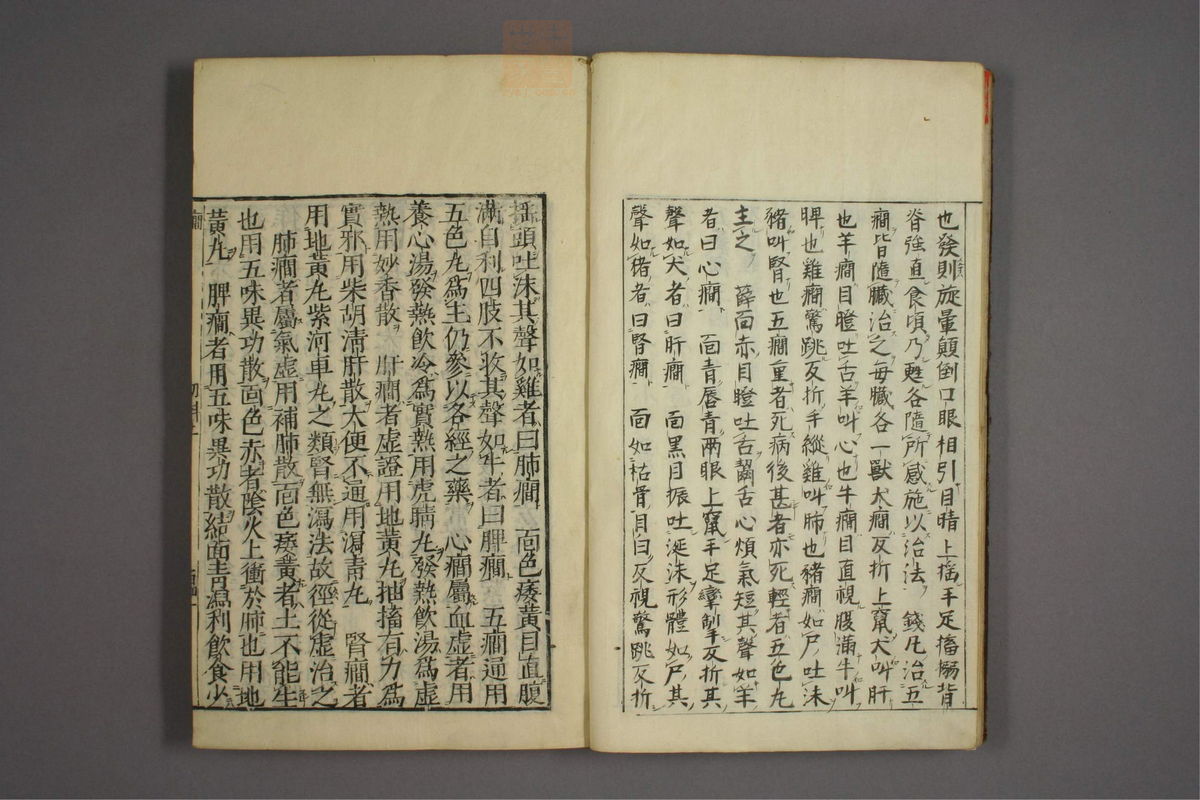 也發則旋暈顛倒口眼相引目睛上搖手足搐搦背
脊強直食頃乃甦各隨所感施以治法 錢凢治五
癎皆隨臟治之每臟各一獸犬癎反折上竄犬叫肝
也羊癎目瞪吐舌羊叫心也牛癎目直視腹滿牛叫
脾也雞癎驚跳反折手縱雞叫肺也豬癎如尸吐沫
豬叫腎也五癎重者死病後甚者亦死輕者五色丸
主之 薛面赤目瞪吐舌齧舌心煩氣短其聲如羊
者曰心癎 面青唇青兩眼上竄手足攣掣反折其
聲如犬者曰肝癎 面黑目振吐涎沫形體如尸其
聲如豬者曰腎癎 面如枯骨目白反視驚跳反折
搖頭吐沫其聲如雞者曰肺癎 面色痿黃目直腹
滿自利四肢不收其聲如牛者曰脾癎 五癎通用
五色丸爲主仍參以各經之藥 心癎屬血虛者用
養心湯發熱飲冷爲實熱用虎睛丸發熱飲湯爲虛
熱用妙香散 肝癎者虛證用地黃丸抽搐有力爲
實邪用柴胡清肝散大便不通用瀉青丸 腎癎者
用地黃丸紫河車丸之類腎無瀉法故徑從虛治之
肺癎者屬氣虛用補肺散面色痿黃者土不能生
也用五味異功散面色赤者陰火上衝於肺也用地
黃丸 脾癎者用五味異功散結面青瀉利飲食少
癎